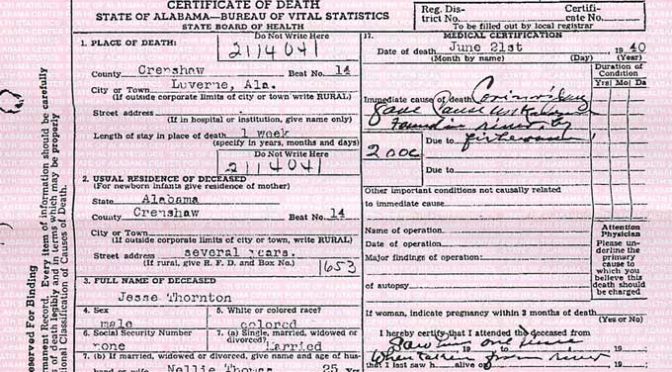 CERTIFICATE OF DEATH
STATE OF ALABAMA—BUREAU OF VITAL STATISTICS
STATE BOARD OF HEALTH
Reg. Dis-
trict No.
Certifi-
cate No.
To be filled out by local registrar
1. PLACE OF DEATH:
Do Not Write Here
2114041
County Crenshaw Beat No. 14
City or Town Luverne, Ala.
(If outside corporate limits of city or town write RURAL)
Street address
(If in hospital or institution, give name only)
Length of stay in place of death 1 week
(specify in years, months and days)
Do Not Write Here
2114041
2. USUAL RESIDENCE OF DECEASED
(For newborn infants give residence of mother)
State Alabama
County Crenshaw Beat No. 14
City or Town
(If outside corporate limits of city or town, write RURAL)
Street address several years.
(If rural, give R. F. D. and Box No.)
1653
3. FULL NAME OF DECEASED
Jesse Thornton
4. Sex
male
5. White or colored race?
colored
6. Social Security Number
none
7. (a) Single, married, widowed or
divorced?
Married
7. (b) If married, widowed or divorced, give name and age of hus-
Nellie 25
17. MEDICAL CERTIFICATION
Date of death June 21st 1940
(Month by name) (Day) (Year)
Duration of
Condition
Yrs Mos Da
Immediate cause of death
gave cause
found in river by
2000
Due to fisherman
Due to
Other important conditions not causally related
to immediate cause
Name of operation
Date of operation
Major findings of operation
of autopsy
Attention
Physician
Please un-
derline the
primary
cause to
which you
believe this
death should
be charged
If woman, indicate pregnancy within 3 months of death
(Yes or No)
I hereby certify that I attended the deceased from
Saw him one time
When taken from river
that I last saw h alive on
eserved For Binding
manent Record. Every item of information should be carefully
of death legibly and in terms which may be properly
ional Classification of Causes of Death.